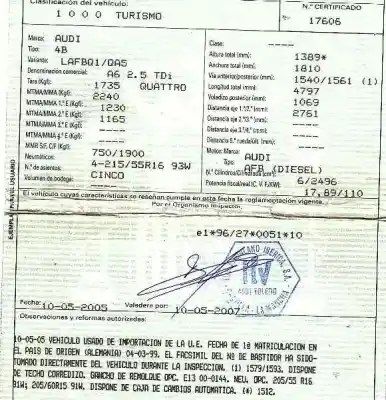 Clasificación del vehículo:
1000 TURISMO
N.º CERTIFICADO
17606
Marca: AUDI
Tipo: 4B
Variante: LAFBQ1/QA5
Denominación comercial: A6 2.5 TDi
Tara (Kg): 1735 QUATTRO
MTMA/MMA (Kg): 2240
MTMA/MMA 1.º E (Kg): 1230
MTMA/MMA 2.º E (Kg): 1165
MTMA/MMA 3.º E (Kg): ----
MTMA/MMA 4.º E (Kg): ----
MMR S/F, C/F (Kg): 750/1900
Neumáticos: 4-215/55R16 93W
N.º de asientos: CINCO
Volumen de bodega: ----
Clase: ----
Altura total (mm): 1389*
Anchura total (mm): 1810
Vía anterior/posterior (mm): 1540/1561 (1)
Longitud total (mm): 4797
Voladizo posterior (mm): 1069
Distancia eje 1.º/2.º (mm): 2761
Distancia eje 2.º/3.º (mm): ----
Distancia eje 3.º/4.º (mm): ----
Distancia 5.ª rueda/últ. (mm): ----
Motor: Marca: AUDI
Tipo: AFB (DIESEL)
N.º Cilindros/Cilindrada (cm³): 6/2496
Potencia fiscal/real (C. V. F./KW): 17,89/110
El vehículo cuyas características se reseñan cumple en esta fecha la reglamentación vigente.
Por el Organismo Inspector,
EJEMPLAR PARA EL USUARIO
e1*96/27*0051*10
ITV
Fecha: 10-05-2005 Valedero por: 10-05-2007
Observaciones y reformas autorizadas:
10-05-05 VEHICULO USADO DE IMPORTACION DE LA U.E. FECHA DE 1ª MATRICULACION EN
EL PAIS DE ORIGEN (ALEMANIA) 04-03-99. EL FACSIMIL DEL Nº DE BASTIDOR HA SIDO-
TOMADO DIRECTAMENTE DEL VEHICULO DURANTE LA INSPECCION. (1) 1579/1593. DISPONE
DE TECHO CORREDIZO. GANCHO DE REMOLQUE OPC. E13 00-0144. NEU. OPC. 205/55 R16
91W; 205/60R15 91W. DISPONE DE CAJA DE CAMBIOS AUTOMATICA. (*) 1512.